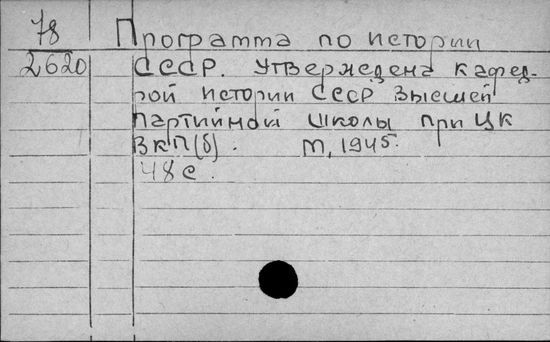 78 Программа по истории
2620 СССР. Утверждена кафед-
рой истории СССР Высшей
партийной школы при ЦК
ВКП(б). М., 1945.
48с.